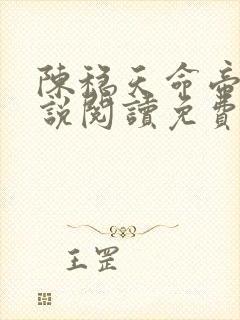 陳稳天命帝
說閱讀免費
王罡